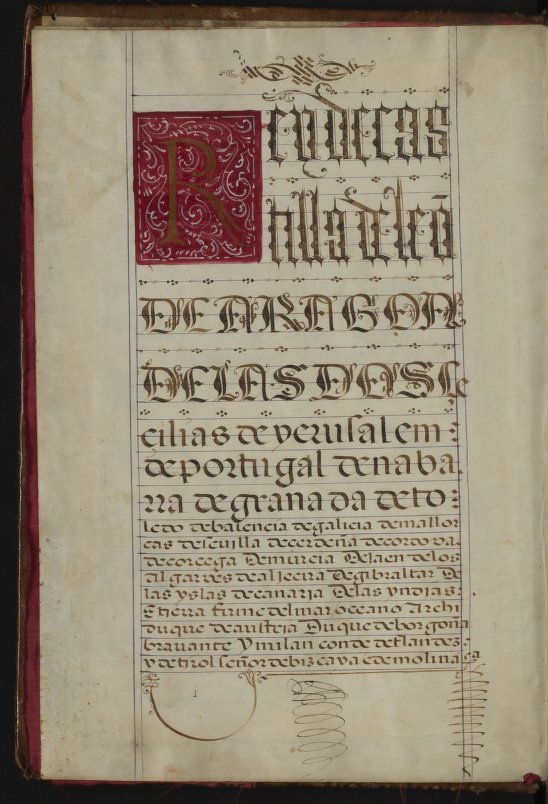 Rey de cas
tilla de leõ
DE ARAGON
DE LAS DOS Ce
cilias de yerusalem :
de portugal de naba
rra de granada de to :
ledo de balencia de galicia de mallor
cas de sevilla de cerdeña de cordo va
de corcega De murcia De Jaen de los
Al garves de al jecira De gibraltar De
las yslas de canaria De las yndias :
E tierra firme del mar oceano Archi
duque de austria Duque de borgoña
bravante Y milan conde de flandes :
y de tirol señor de bizcaya e de molina